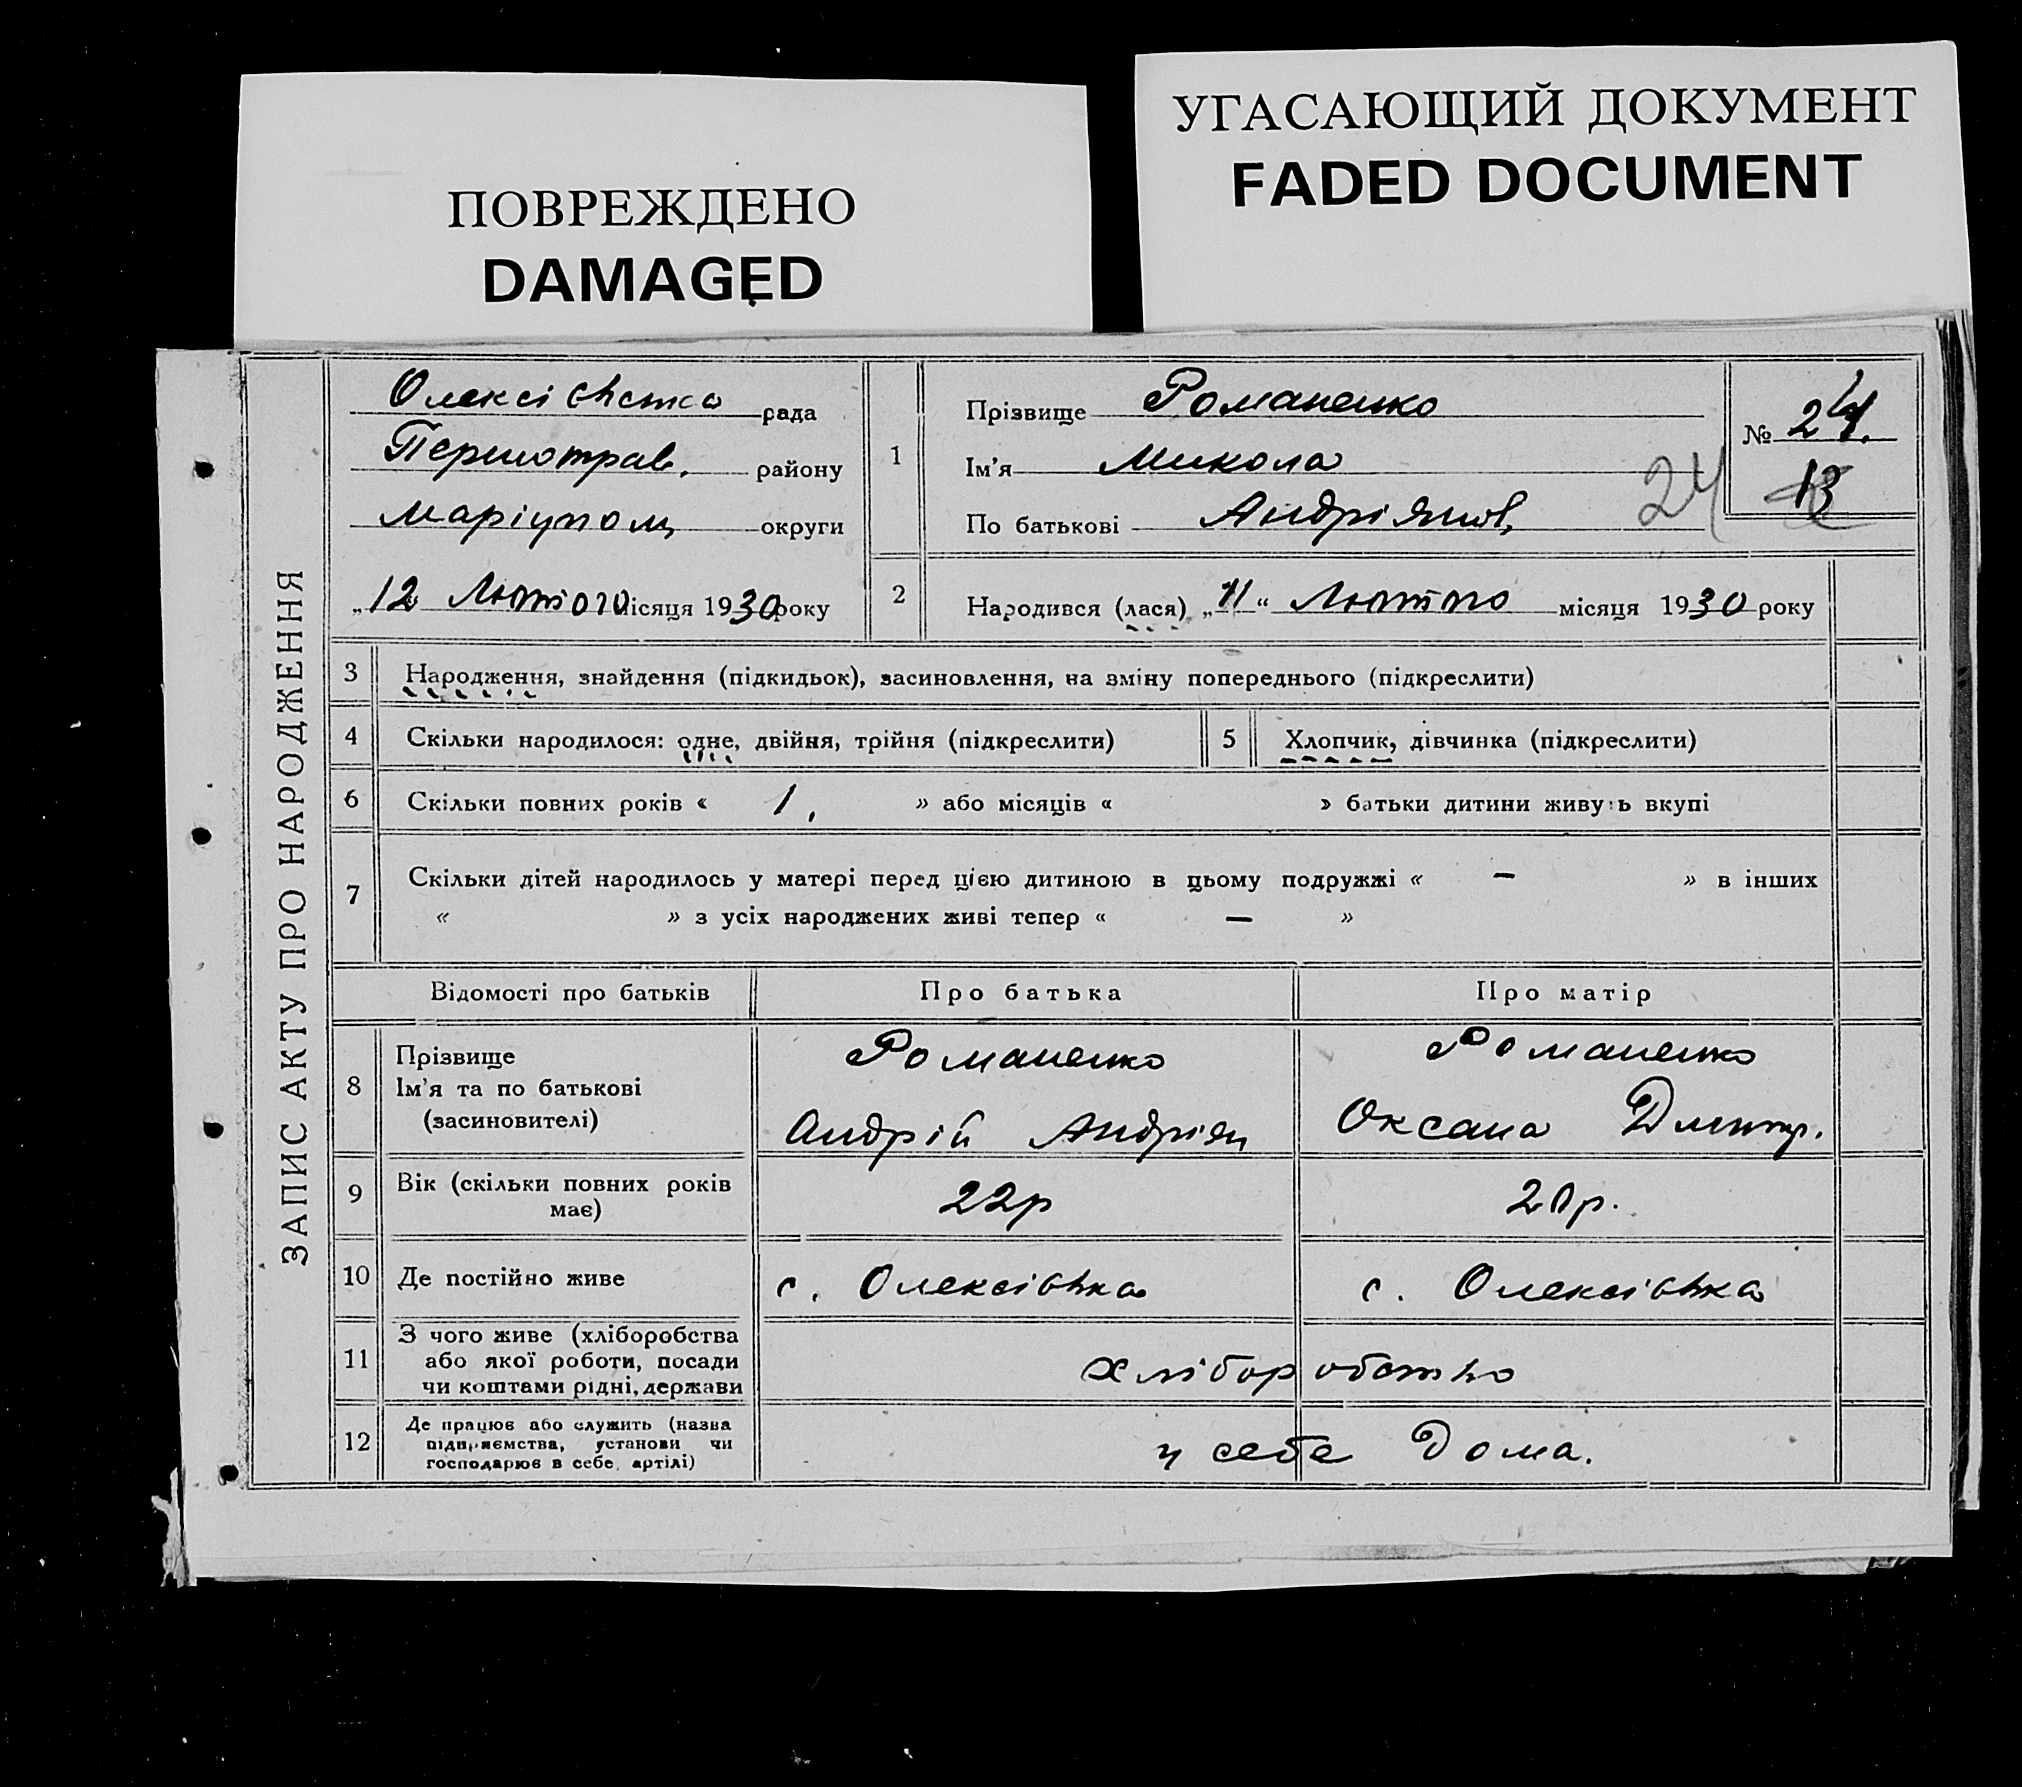 ПОВРЕЖДЕНО
DAMAGED
УГАСАЮЩИЙ ДОКУМЕНТ
FADED DOCUMENT
ЗАПИС АКТУ ПРО НАРОДЖЕННЯ
Олексівська рада
Першотрав. району
Маріупол округи
„12“ Лютого місяця 1930 року
1
Прізвище Романенко
Ім'я Микола
По батькові Андріянов.
24
№ 24.
13
2
Народився (лася) „11“ Лютого місяця 1930 року
3 Народження, знайдення (підкидьок), засиновлення, на зміну попереднього (підкреслити)
4 Скільки народилося: одне, двійня, трійня (підкреслити)
5 Хлопчик, дівчинка (підкреслити)
6 Скільки повних років « 1. » або місяців « » батьки дитини живуть вкупі
7 Скільки дітей народилось у матері перед цією дитиною в цьому подружжі « — » в інших
« » з усіх народжених живі тепер « — »
Відомості про батьків Про батька Про матір
8 Прізвище
Ім'я та по батькові
(засиновителі)
Романенко
Андрій Андріян
Романенко
Оксана Дмитр.
9 Вік (скільки повних років
має)
22р
20р.
10 Де постійно живе с. Олексівка с. Олексівка
11 З чого живе (хліборобства
або якої роботи, посади
чи коштами рідні, держави
хліборобство
12 Де працює або служить (назва
підприємства, установи чи
господарює в себе, артілі)
у себе Дома.